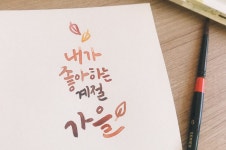 내가
좋아하는
계절
가을